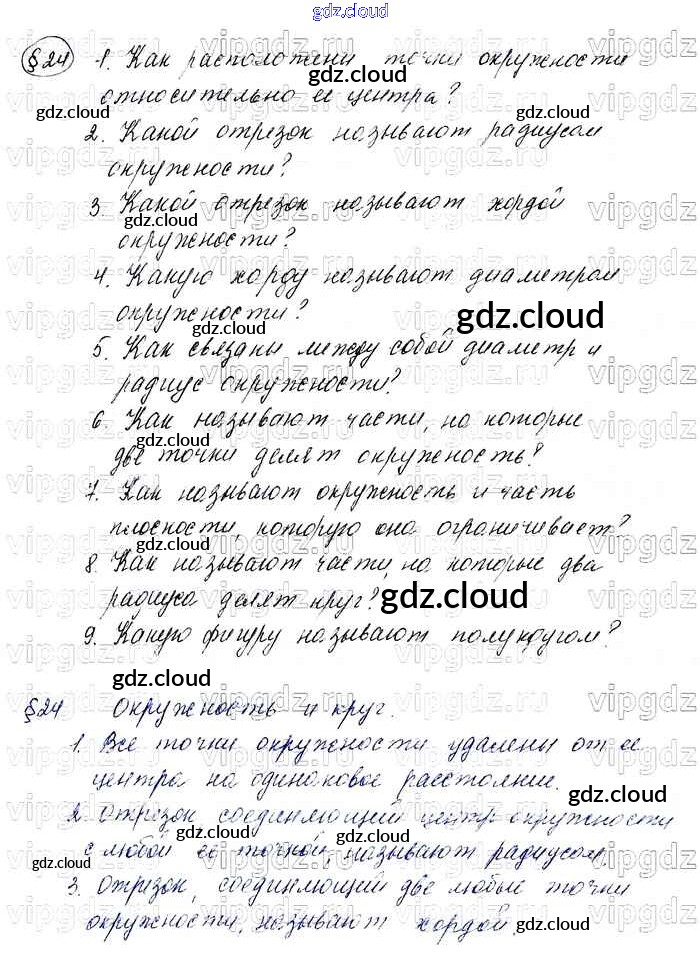 gdz.cloud
§24 1. Как расположены точки окружности
относительно ее центра?
2. Какой отрезок называют радиусом
окружности?
3. Какой отрезок называют хордой
окружности?
4. Какую хорду называют диаметром
окружности?
5. Как связаны между собой диаметр и
радиус окружности?
6. Как называют части, на которые
две точки делят окружность?
7. Как называют окружность и часть
плоскости, которую она ограничивает?
8. Как называют части, на которые два
радиуса делят круг?
9. Какую фигуру называют полукругом?
§24 Окружность и круг.
1. Все точки окружности удалены от ее
центра на одинаковое расстояние.
2. Отрезок, соединяющий центр окружности
с любой ее точкой, называют радиусом.
3. Отрезок, соединяющий две любые точки
окружности, называют хордой.